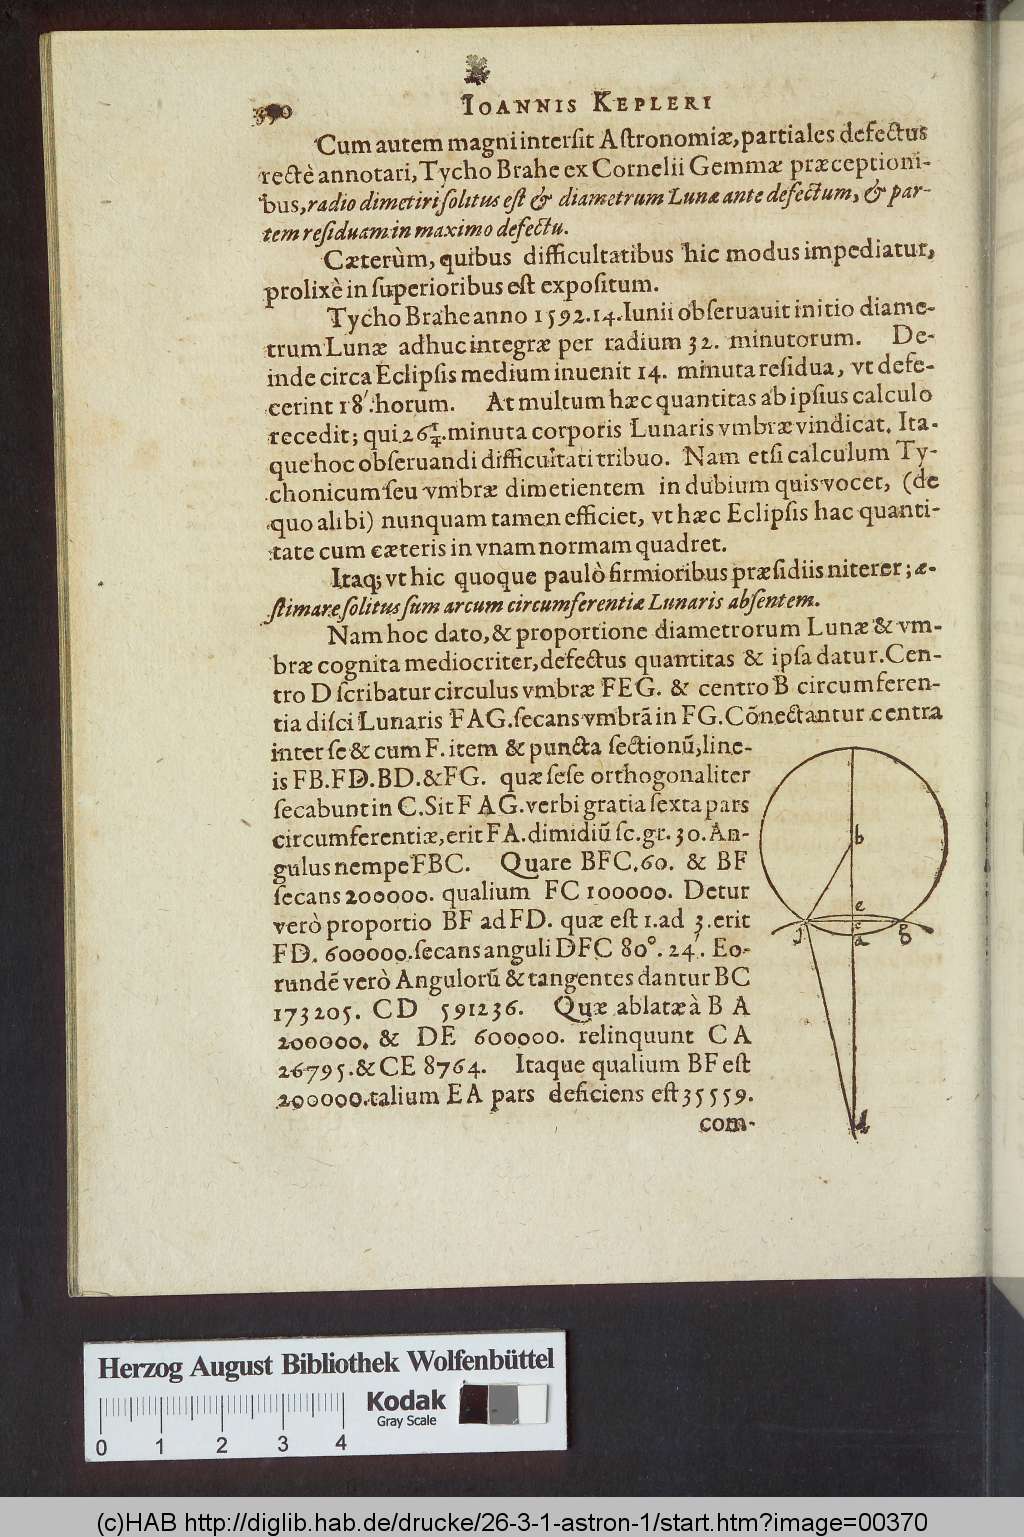 350
IOANNIS KEPLERI
Cum autem magni interſit Aſtronomiæ, partiales defectus
rectè annotari, Tycho Brahe ex Cornelii Gemmæ præceptioni-
bus, radio dimetiri ſolitus eſt & diametrum Lunæ ante defectum, & par-
tem reſiduam in maximo defectu.
Cæterùm, quibus difficultatibus hic modus impediatur,
prolixè in ſuperioribus eſt expoſitum.
Tycho Brahe anno 1592. 14. Iunii obſeruauit initio diame-
trum Lunæ adhuc integræ per radium 32. minutorum. De-
inde circa Eclipſis medium inuenit 14. minuta reſidua, vt defe-
cerint 18'. horum. At multum hæc quantitas ab ipſius calculo
recedit; qui 26 1/4. minuta corporis Lunaris vmbræ vindicat. Ita-
que hoc obſeruandi difficultati tribuo. Nam etſi calculum Ty-
chonicum ſeu vmbræ dimetientem in dubium quis vocet, (de
quo alibi) nunquam tamen efficiet, vt hæc Eclipſis hac quanti-
tate cum cæteris in vnam normam quadret.
Itaq; vt hic quoque paulò firmioribus præſidiis niterer; æ-
ſtimare ſolitus ſum arcum circumferentiæ Lunaris abſentem.
Nam hoc dato, & proportione diametrorum Lunæ & vm-
bræ cognita mediocriter, defectus quantitas & ipſa datur. Cen-
tro D ſcribatur circulus vmbræ FEG. & centro B circumferen-
tia diſci Lunaris FAG. ſecans vmbrã in FG. Cõnectantur centra
inter ſe & cum F. item & puncta ſectionũ, line-
is FB. FD. BD. & FG. quæ ſeſe orthogonaliter
ſecabunt in C. Sit FAG. verbi gratia ſexta pars
circumferentiæ, erit FA. dimidiũ ſc. gr. 30. An-
gulus nempe FBC. Quare BFC. 60. & BF
ſecans 200000. qualium FC 100000. Detur
verò proportio BF ad FD. quæ eſt 1. ad 3. erit
FD. 600000. ſecans anguli DFC 80°. 24'. Eo-
rundẽ verò Angulorũ & tangentes dantur BC
173205. CD 591236. Quæ ablatæ à BA
200000. & DE 600000. relinquunt CA
26795. & CE 8764. Itaque qualium BF eſt
200000. talium EA pars deficiens eſt 35559.
com-
b
e
c
f
a
g
d
Herzog August Bibliothek Wolfenbüttel
Kodak
Gray Scale
0 1 2 3 4
(c)HAB http://diglib.hab.de/drucke/26-3-1-astron-1/start.htm?image=00370